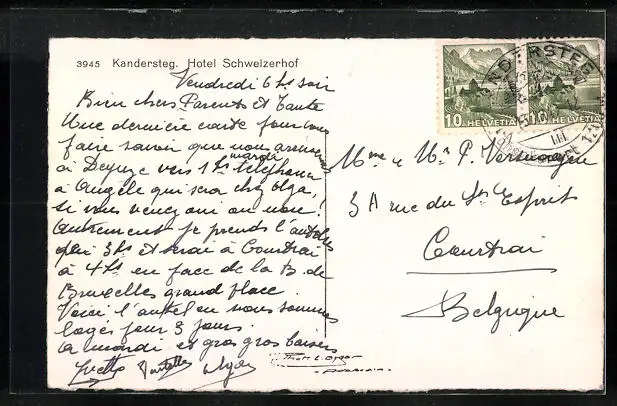 3945 Kandersteg. Hotel Schweizerhof
Vendredi 6 hs soir
Bien chers Parents et Tante
Une dernière carte pour vous
faire savoir que nous arriverons
mardi
à Deynze vers 1 hs téléphoner
à Angèle qui sera chez Olga,
si vous venez oui ou non!
Autrement je prends l'autobus
3 hs et serai à Courtrai
à 4 hs en face de la B. de
Bruxelles grand place.
Voici l'hôtel où nous sommes
logés pour 3 jours.
à mardi et gros gros baisers
Yvette
Mme & Mr P.
3A rue du St Esprit
Courtrai
Belgique
10 HELVETIA
10 HELVETIA
KANDERSTEG